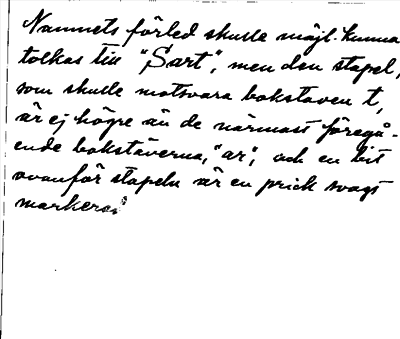 Namnets förled skulle möjl. kunna
tolkas till "Sart", men den stapel,
som skulle motsvara bokstaven t,
är ej högre än de närmast föregå-
ende bokstäverna, "ar", och en bit
ovanför stapeln är en prick svagt
markerad